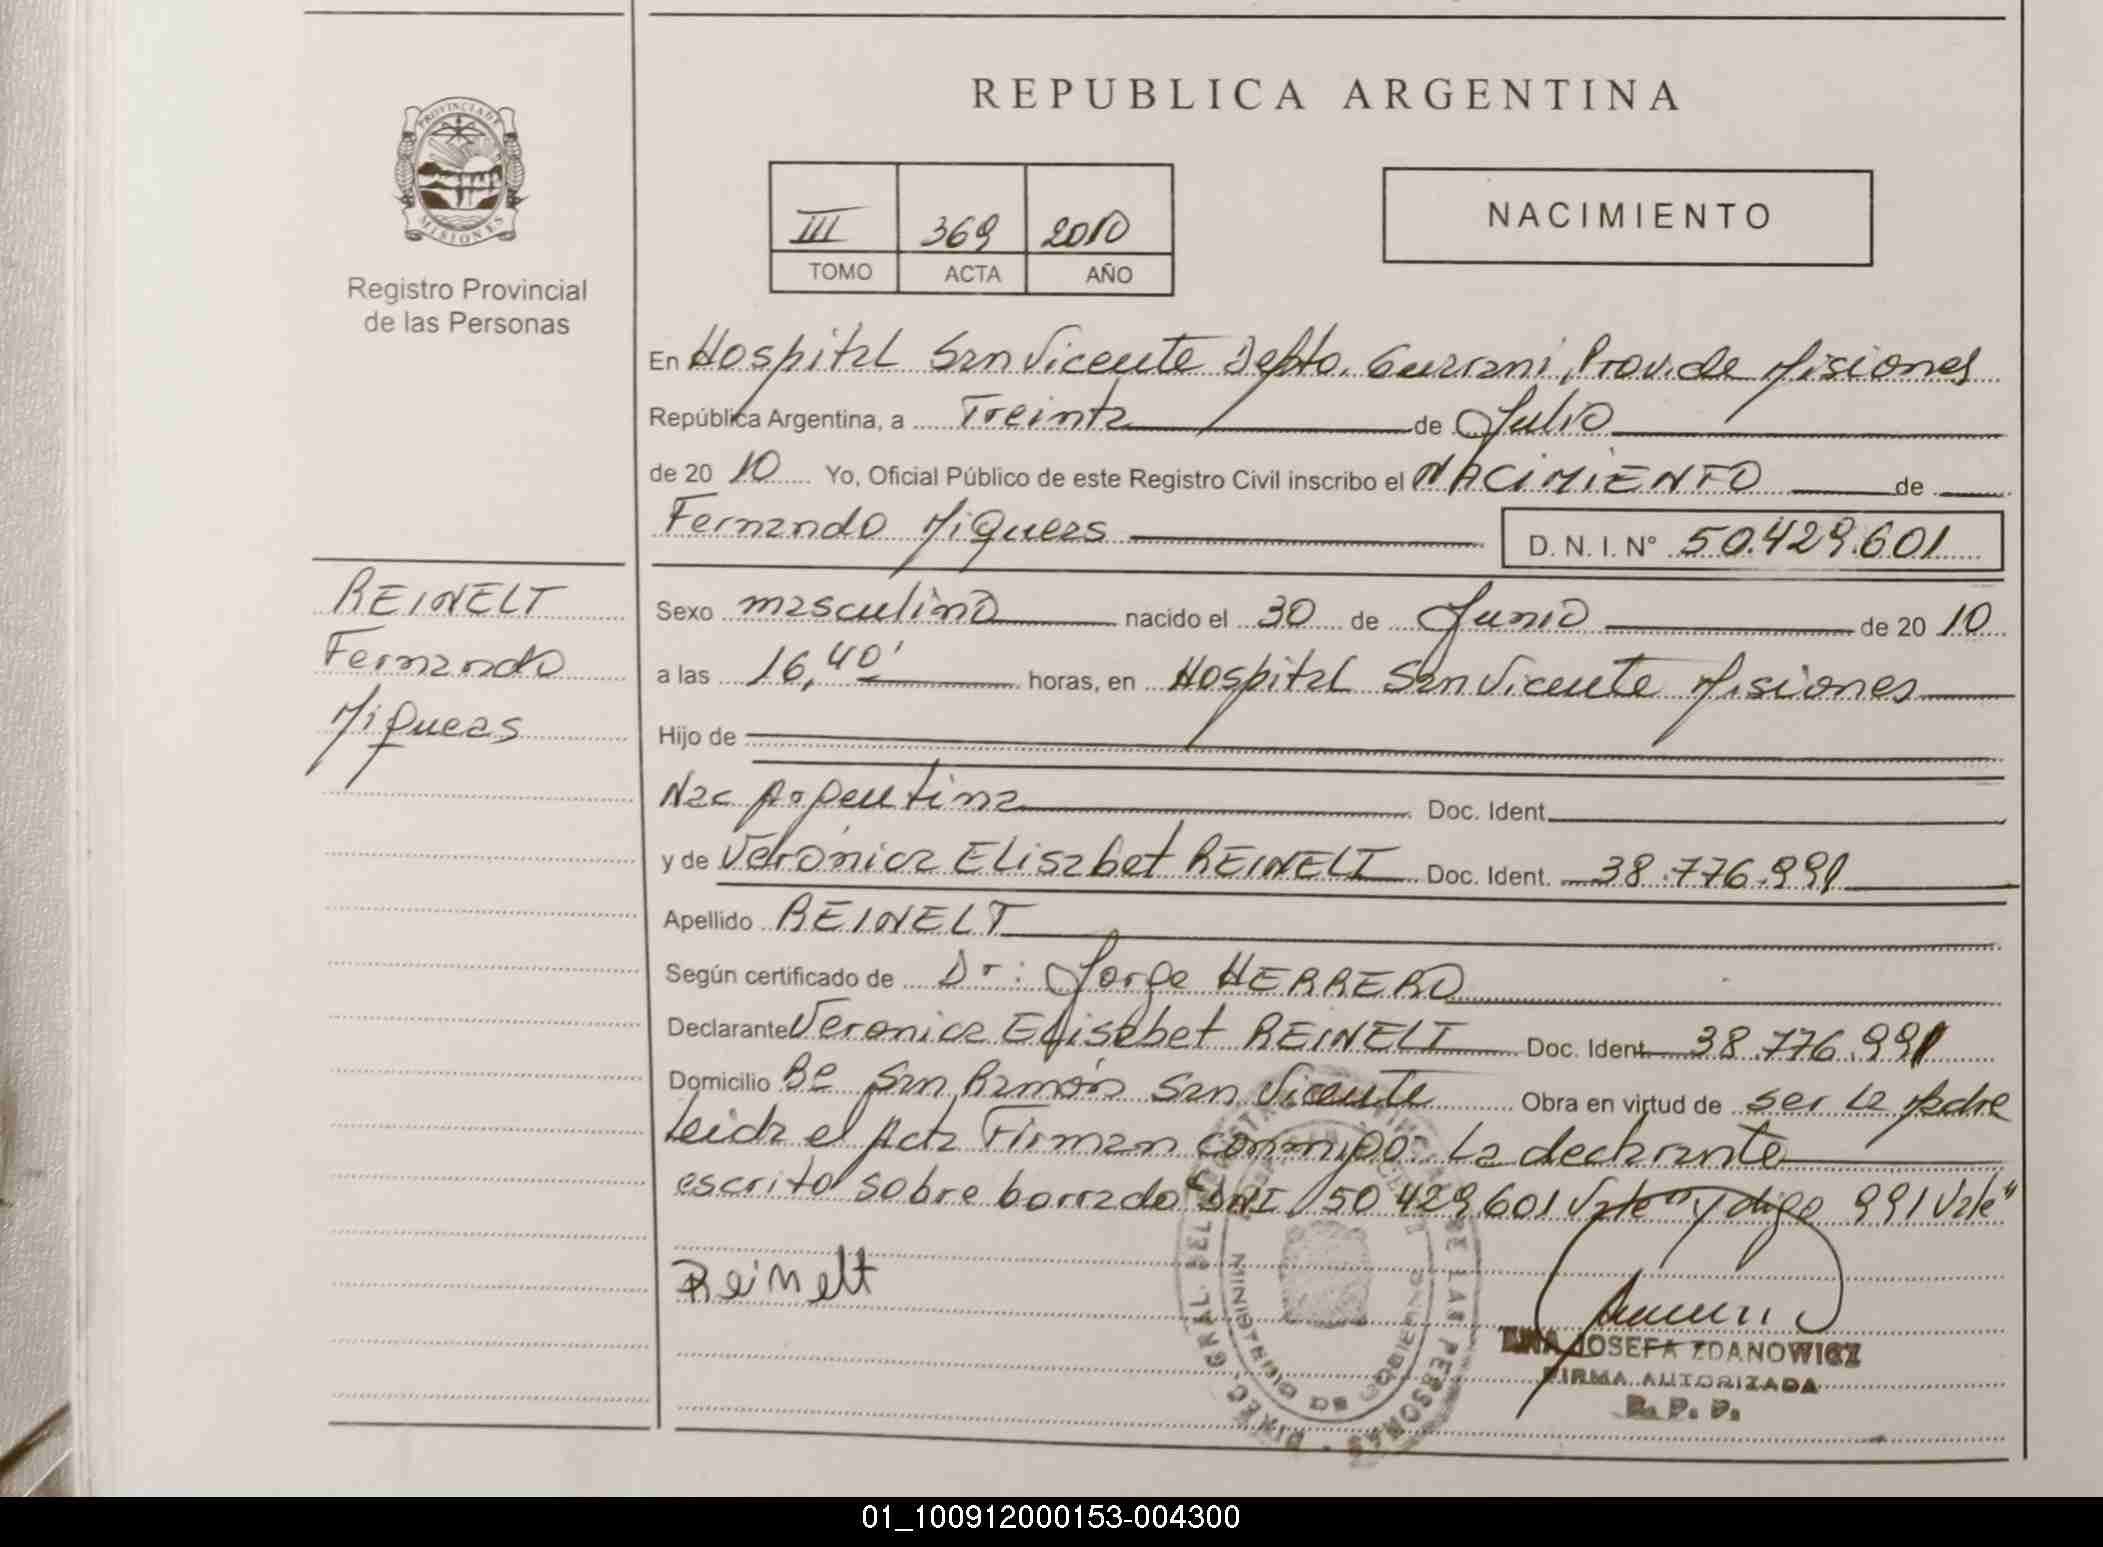 REPUBLICA ARGENTINA
PROVINCIA DE
MISIONES
Registro Provincial
de las Personas
III 369 2010
TOMO ACTA AÑO
NACIMIENTO
En Hospital San Vicente Depto. Guarani, Prov. de Misiones
República Argentina, a Treinta de Julio
de 20 10 Yo, Oficial Público de este Registro Civil inscribo el NACIMIENTO de
Fernando Miqueas D. N. I. N° 50.429.601
REINELT
Fernando
Miqueas
Sexo masculino nacido el 30 de Junio de 20 10
a las 16,40' horas, en Hospital San Vicente Misiones
Hijo de
Nac Argentina Doc. Ident.
y de Verónica Elisabet REINELT Doc. Ident. 38.776.991
Apellido REINELT
Según certificado de Dr: Jorge HERRERO
Declarante Veronica Elisabet REINELT Doc. Ident. 38.776.991
Domicilio Bº San Ramón San Vicente Obra en virtud de ser la Madre
Leida el Acta Firman conmigo: La declarante
escrito sobre borrado "DNI 50 429.601 Vale" y digo 991 Vale"
Reinelt
JOSEFA ZDANOWICZ
FIRMA AUTORIZADA
R. P. P.
DIREC. GRAL. DEL DE LAS PERSONAS
MINISTERIO DE GOBIERNO
01_100912000153-004300